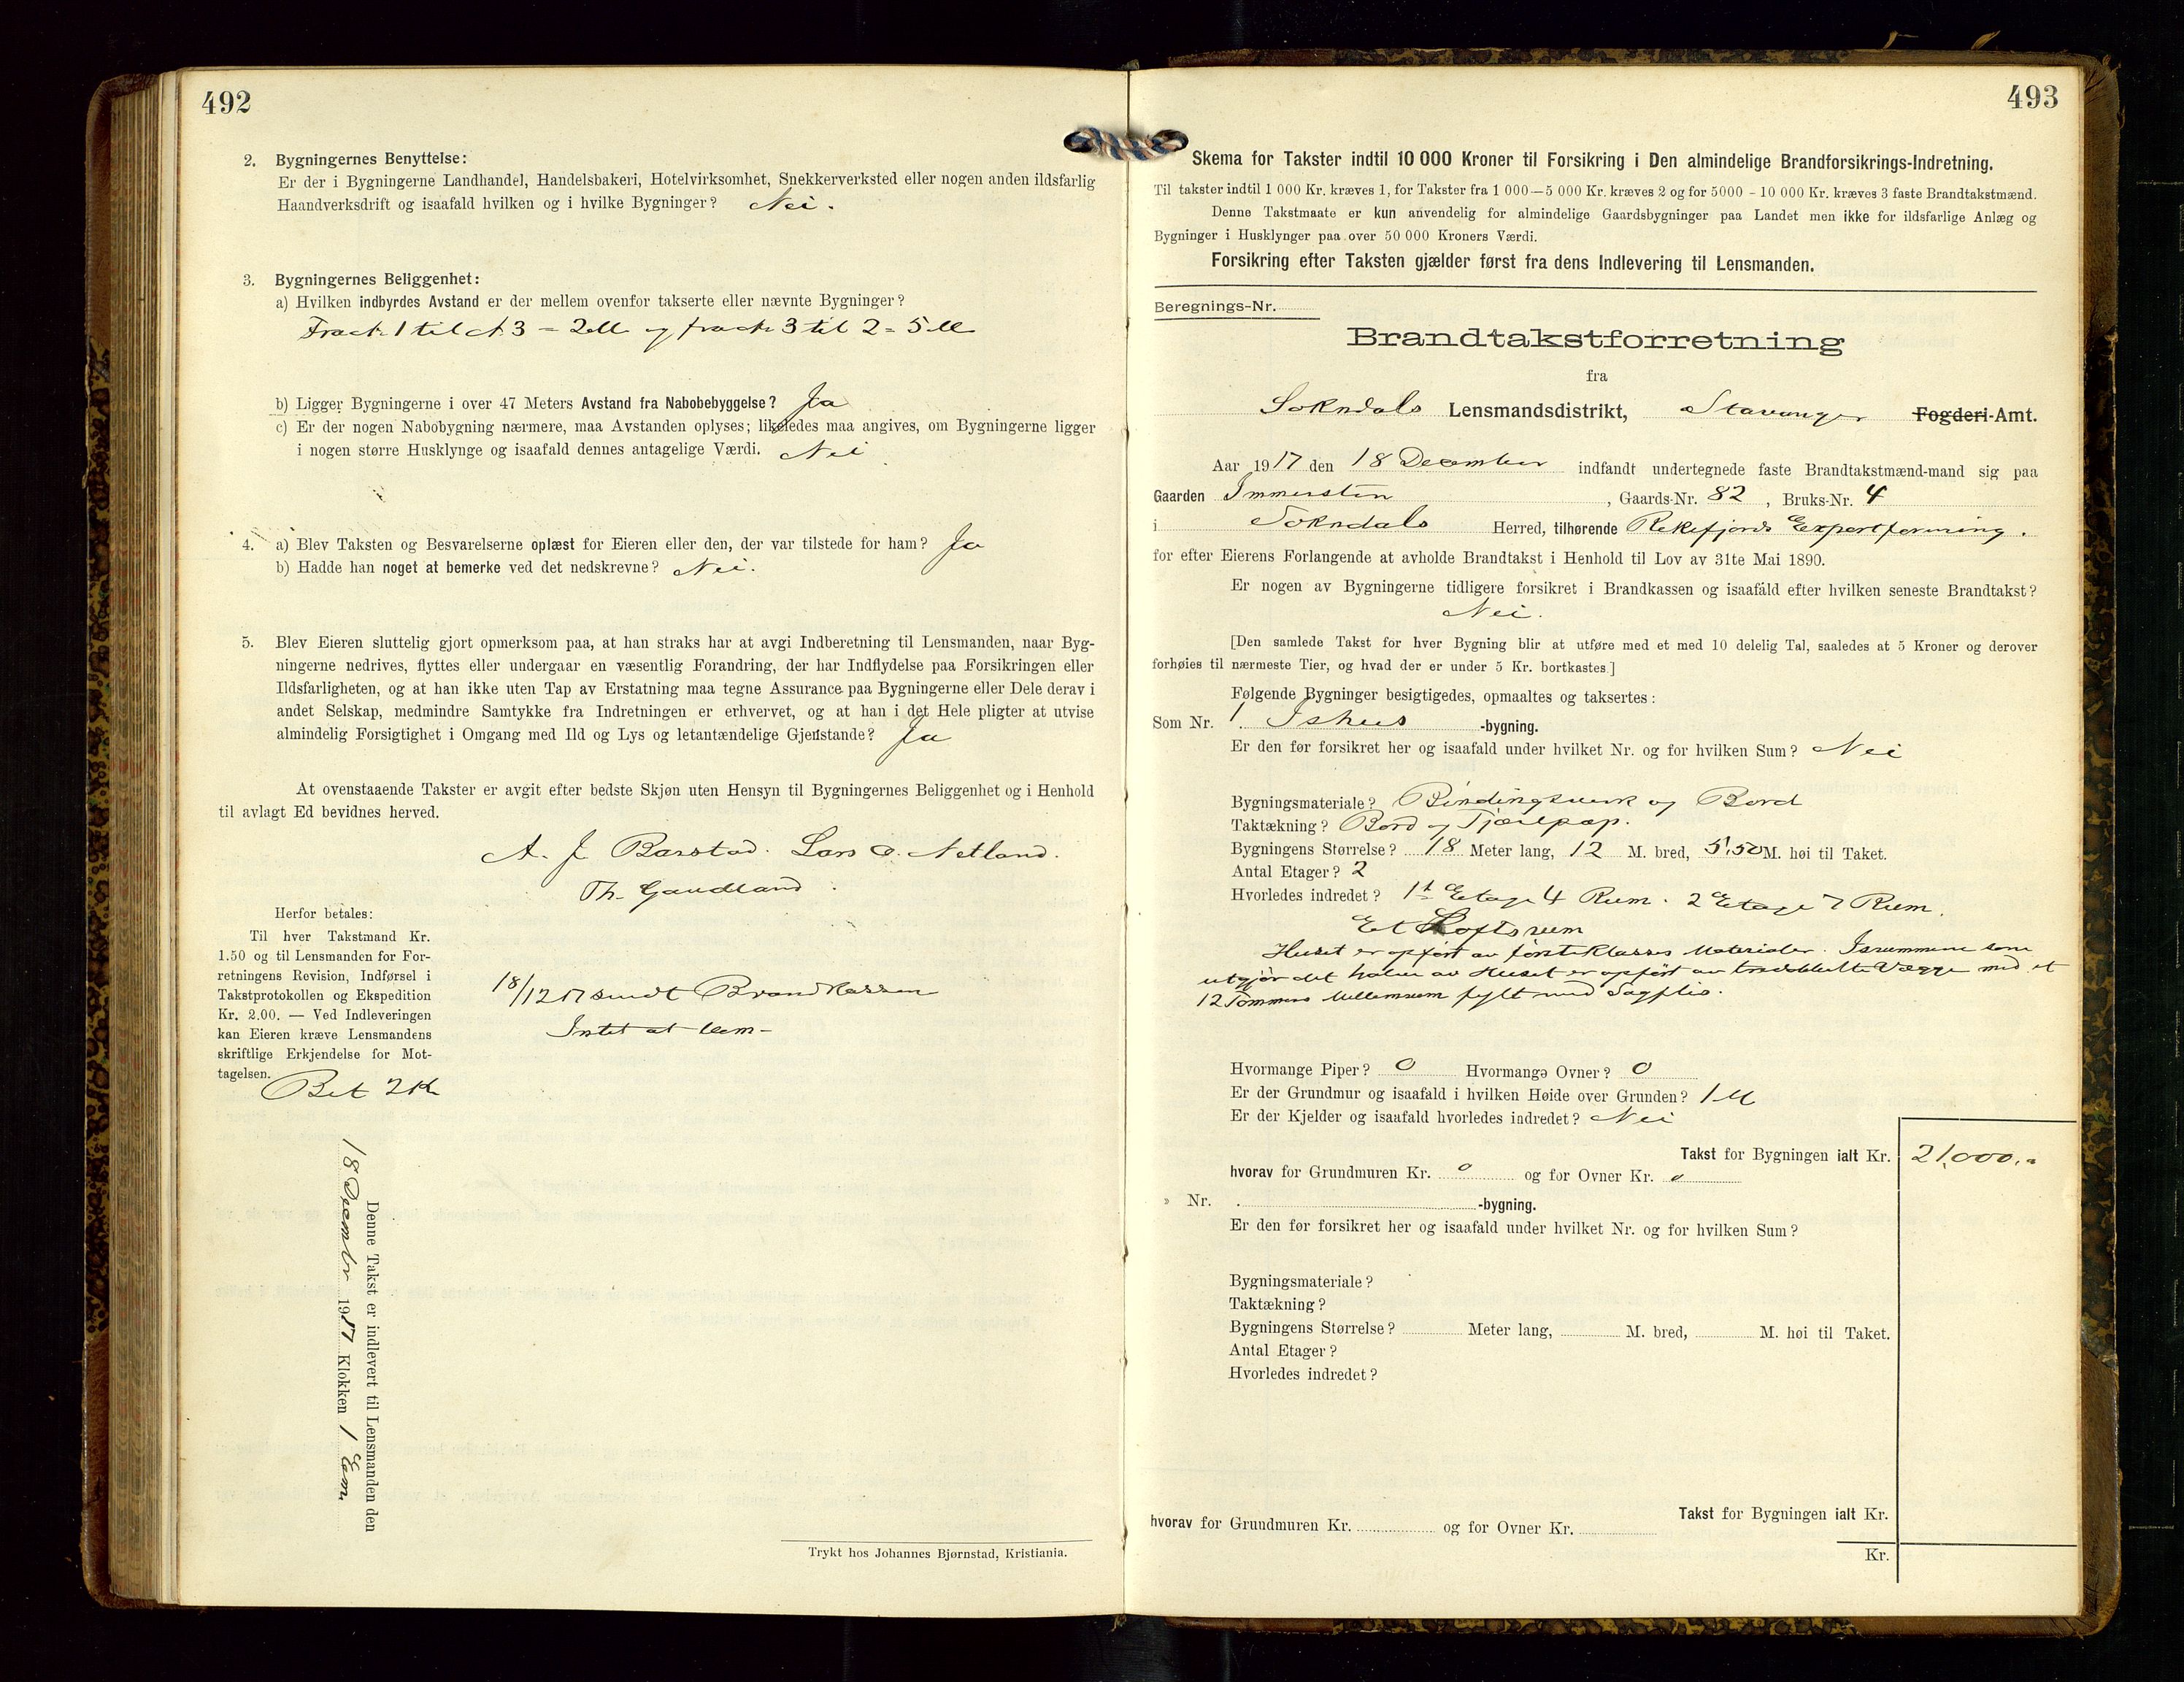 492
2. Bygningernes Benyttelse:
Er der i Bygningerne Landhandel, Handelsbakeri, Hotelvirksomhet, Snekkerverksted eller nogen anden ildsfarlig
Haandverksdrift og isaafald hvilken og i hvilke Bygninger? Nei.
3. Bygningernes Beliggenhet:
a) Hvilken indbyrdes Avstand er der mellem ovenfor takserte eller nævnte Bygninger?
Fra N. 1 til N. 3 = 2 M og fra N. 3 til 2 = 5 M
b) Ligger Bygningerne i over 47 Meters Avstand fra Nabobebyggelse? Ja
c) Er der nogen Nabobygning nærmere, maa Avstanden oplyses; likeledes maa angives, om Bygningerne ligger
i nogen større Husklynge og isaafald dennes antagelige Værdi. Nei
4. a) Blev Taksten og Besvarelserne oplæst for Eieren eller den, der var tilstede for ham? Ja
b) Hadde han noget at bemerke ved det nedskrevne? Nei.
5. Blev Eieren sluttelig gjort opmerksom paa, at han straks har at avgi Indberetning til Lensmanden, naar Byg-
ningerne nedrives, flyttes eller undergaar en væsentlig Forandring, der har Indflydelse paa Forsikringen eller
Ildsfarligheten, og at han ikke uten Tap av Erstatning maa tegne Assurance paa Bygningerne eller Dele derav i
andet Selskap, medmindre Samtykke fra Indretningen er erhvervet, og at han i det Hele pligter at utvise
almindelig Forsigtighet i Omgang med Ild og Lys og letantændelige Gjenstande? Ja
At ovenstaaende Takster er avgit efter bedste Skjøn uten Hensyn til Bygningernes Beliggenhet og i Henhold
til avlagt Ed bevidnes herved.
A. J Barstad. Lars O. Netland.
Th. Gaudland.
Herfor betales:
Til hver Takstmand Kr.
1.50 og til Lensmanden for For-
retningens Revision, Indførsel i
Takstprotokollen og Ekspedition
Kr. 2.00. — Ved Indleveringen
kan Eieren kræve Lensmandens
skriftlige Erkjendelse for Mot-
tagelsen.
Bet 2 Kr
18/12 17 sendt Brandkassen
Intet at bem-
Denne Takst er indlevert til Lensmanden den
18 December 1917 Klokken 1 Em.
Trykt hos Johannes Bjørnstad, Kristiania.
493
Skema for Takster indtil 10 000 Kroner til Forsikring i Den almindelige Brandforsikrings-Indretning.
Til takster indtil 1 000 Kr. kræves 1, for Takster fra 1 000—5 000 Kr. kræves 2 og for 5000 - 10 000 Kr. kræves 3 faste Brandtakstmænd.
Denne Takstmaate er kun anvendelig for almindelige Gaardsbygninger paa Landet men ikke for ildsfarlige Anlæg og
Bygninger i Husklynger paa over 50 000 Kroners Værdi.
Forsikring efter Taksten gjælder først fra dens Indlevering til Lensmanden.
Beregnings-Nr.
Brandtakstforretning
fra
Sokndals Lensmandsdistrikt, Stavanger Fogderi-Amt.
Aar 1917 den 18 December indfandt undertegnede faste Brandtakstmænd-mand sig paa
Gaarden Immerstin, Gaards-Nr. 82, Bruks-Nr. 4
i Sokndals Herred, tilhørende Rekefjords Exportforening.
for efter Eierens Forlangende at avholde Brandtakst i Henhold til Lov av 31te Mai 1890.
Er nogen av Bygningerne tidligere forsikret i Brandkassen og isaafald efter hvilken seneste Brandtakst?
Nei.
[Den samlede Takst for hver Bygning blir at utføre med et med 10 delelig Tal, saaledes at 5 Kroner og derover
forhøies til nærmeste Tier, og hvad der er under 5 Kr. bortkastes.]
Følgende Bygninger besigtigedes, opmaaltes og taksertes:
Som Nr. 1. Ishus -bygning.
Er den før forsikret her og isaafald under hvilket Nr. og for hvilken Sum? Nei
Bygningsmateriale? Bindingsverk og Bord
Taktækning? Bord og Tjærepap.
Bygningens Størrelse? 18 Meter lang, 12 M. bred, 5,50 M. høi til Taket.
Antal Etager? 2
Hvorledes indredet? 1st Etage 4 Rum. 2 Etage 7 Rum.
Et Loftsrum
Huset er opført av førsteklasses Materialer. Isrummene som
utgjør det halve av Huset er opført av tredobbelte Vægge med et
12 Tommers Mellemrum fylt med Sagflis.
Hvormange Piper? 0 Hvormange Ovner? 0
Er der Grundmur og isaafald i hvilken Høide over Grunden? 1 M
Er der Kjelder og isaafald hvorledes indredet? Nei
Takst for Bygningen ialt Kr. 21,000,-
hvorav for Grundmuren Kr. 0 og for Ovner Kr. 0
» Nr. . -bygning.
Er den før forsikret her og isaafald under hvilket Nr. og for hvilken Sum?
Bygningsmateriale?
Taktækning?
Bygningens Størrelse? Meter lang, M. bred, M. høi til Taket.
Antal Etager?
Hvorledes indredet?
Takst for Bygningen ialt Kr.
hvorav for Grundmuren Kr. og for Ovner Kr.
Kr.